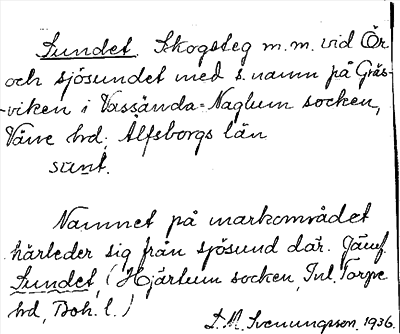 Sundet. Skogsteg m.m. vid Ör
och sjösundet med s. namn på Gräs-
-viken i Vassända-Naglum socken,
Väne hd; Älfsborgs län
sunt.
Namnet på markområdet
härleder sig från sjösund där. Jämf.
Sundet, (Hjärtum socken, Inl. Torpe
hd, Boh. l.)
D.M. Svenungsson, 1936.